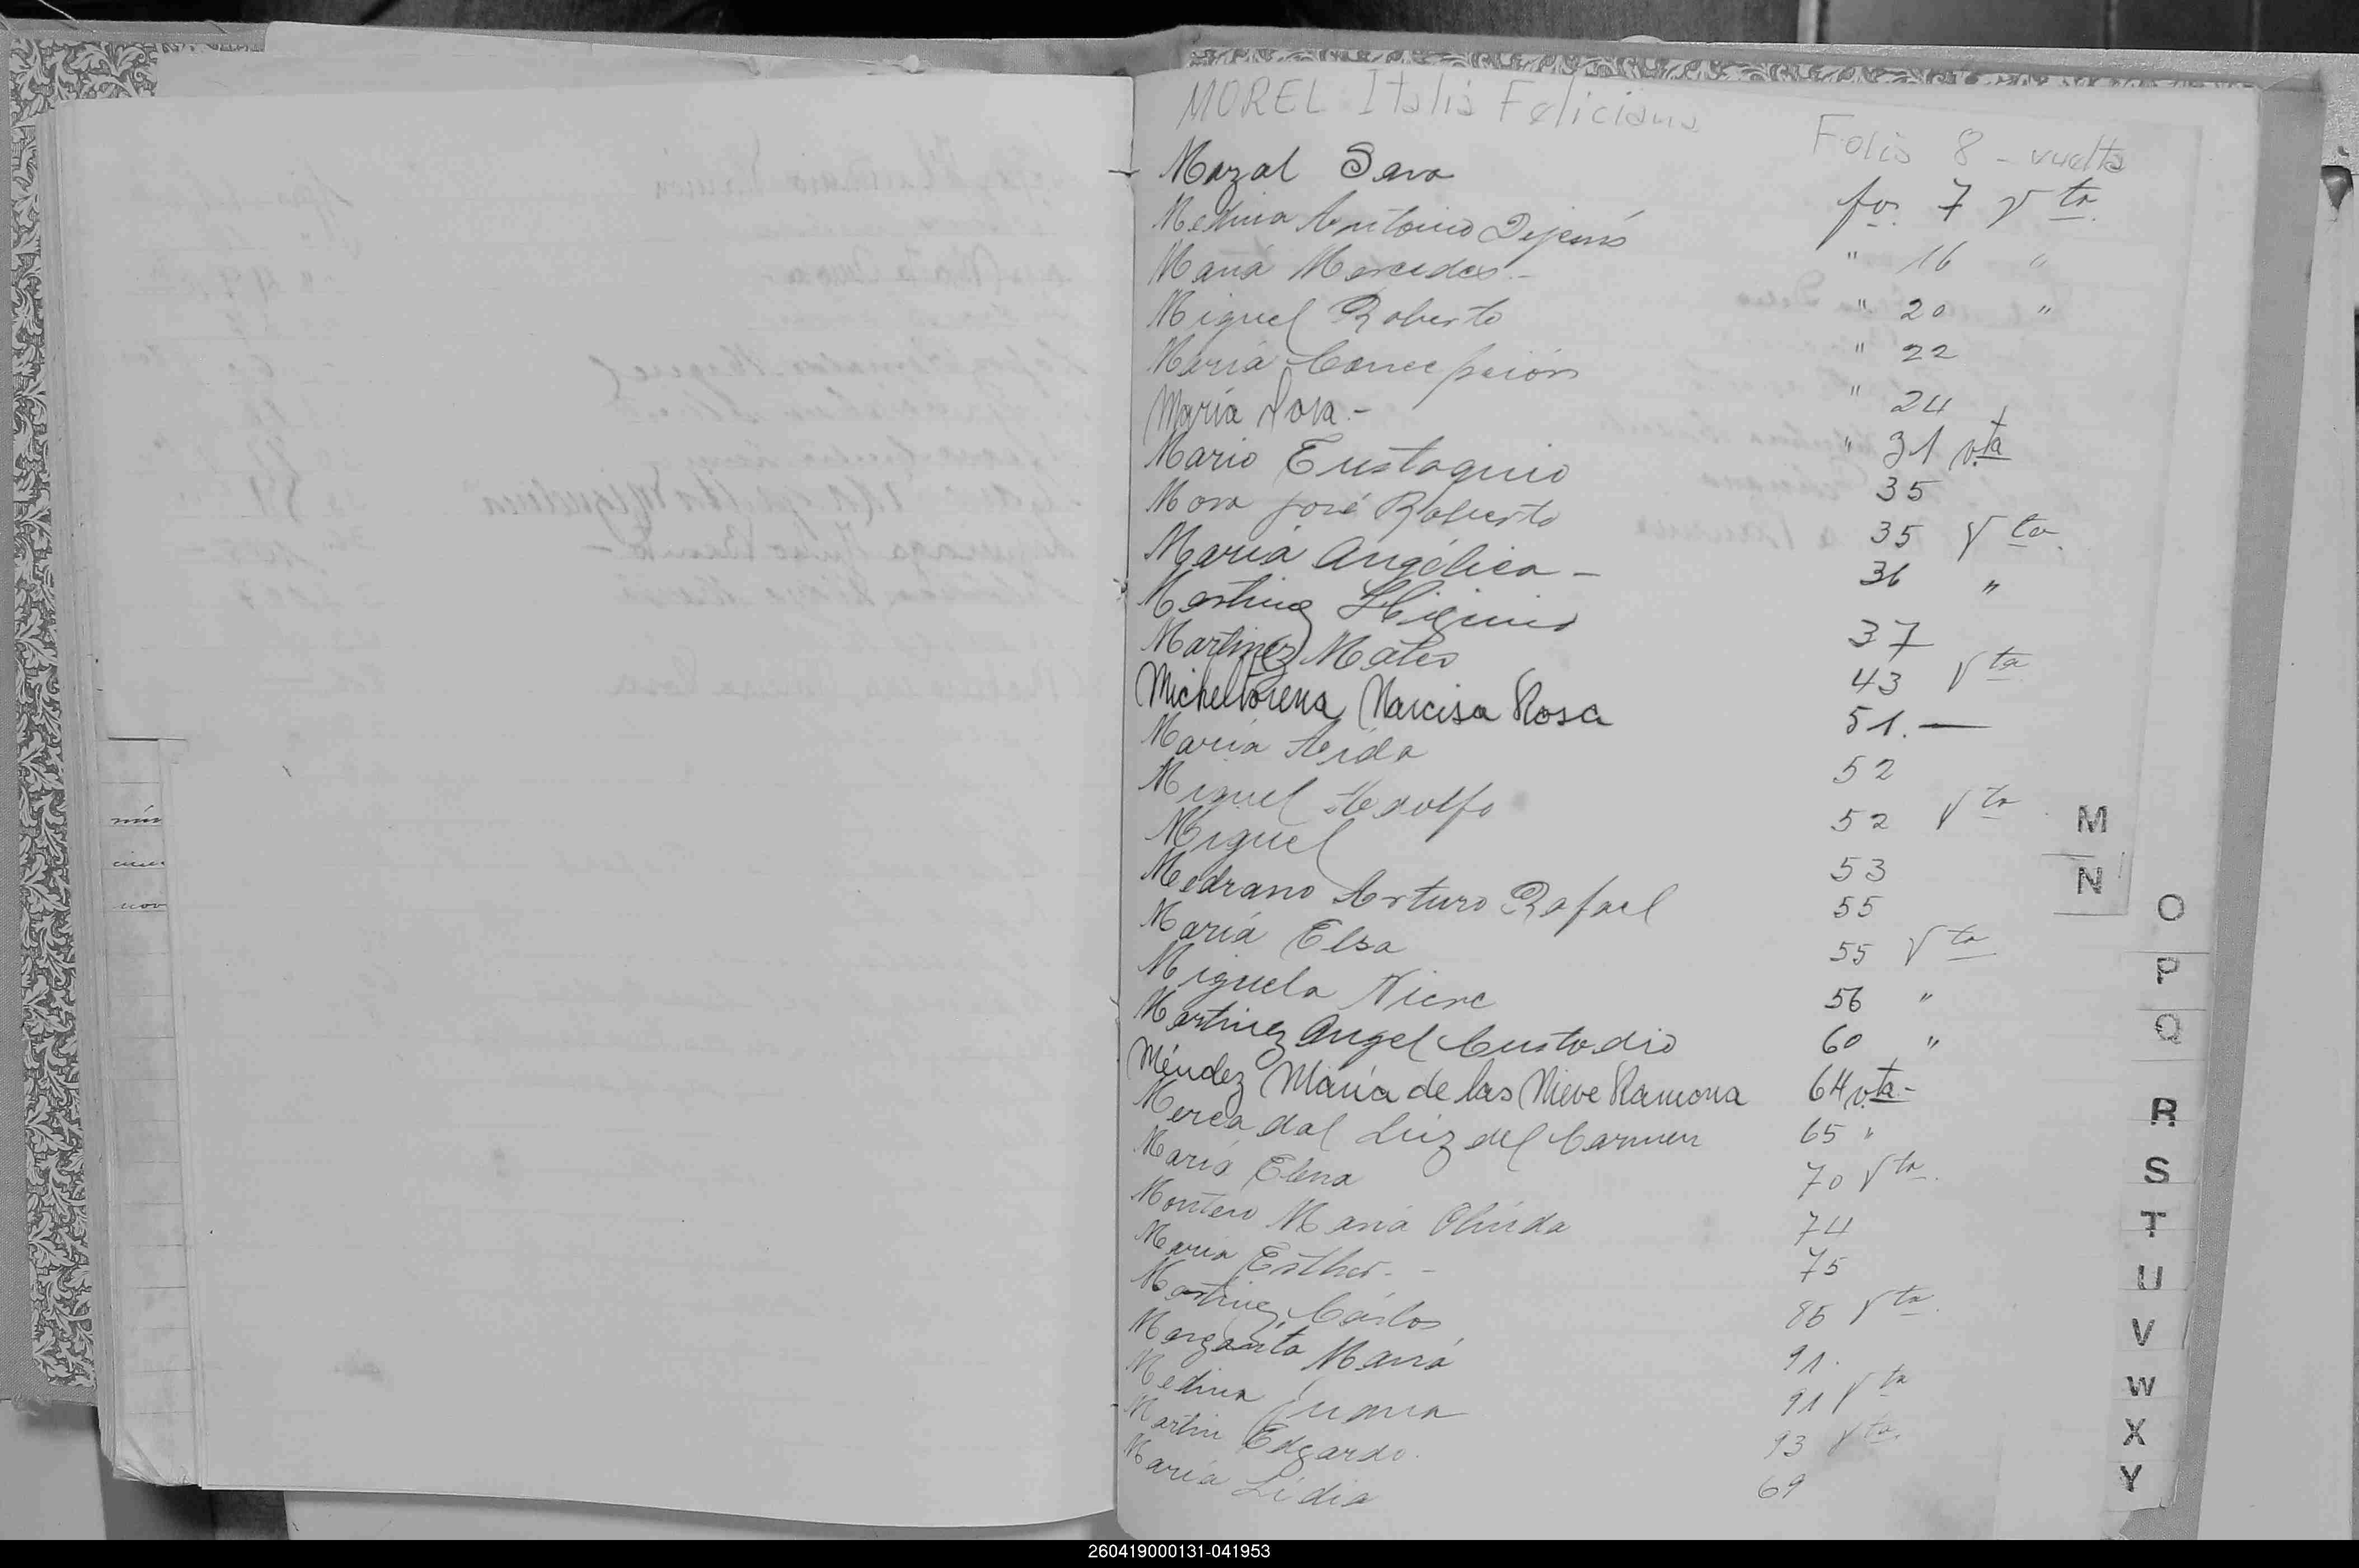 MOREL Italia Feliciana Folio 8 - vuelta
Mazal Sara fo. 7 Vta.
Medina Antonio Dejesús " 16 "
María Mercedes.- " 20 "
Miguel Roberto " 22
María Concepción " 24
María Rosa.- " 31 vta
Mario Eustaquio 35
Mora José Roberto 35 Vta.
María Angélica - 36 "
Martinez Higinio 37
Martinez Mateo 43 Vta
Micheltorena Narcisa Rosa 51.—
María Aida 52
Miguel Adolfo 52 Vta
Miguel 53
Medrano Arturo Rafael 55
María Elsa 55 Vta
Miguela 56 "
Martinez Angel Custodio 60 "
Méndez María de las Nieve Ramona 64 vta-
Mercadal Luiz del Carmen 65 "
María Elena 70 Vta.
Montero María Olinda 74
María Esther. - 75
Martinez Carlos 85 Vta.
Margarita María 91.
Medina Juana 91 Vta
Martin Edgardo. 93 Vta.
María Lidia 69
M
N
O
P
Q
R
S
T
U
V
W
X
Y
nov
260419000131-041953